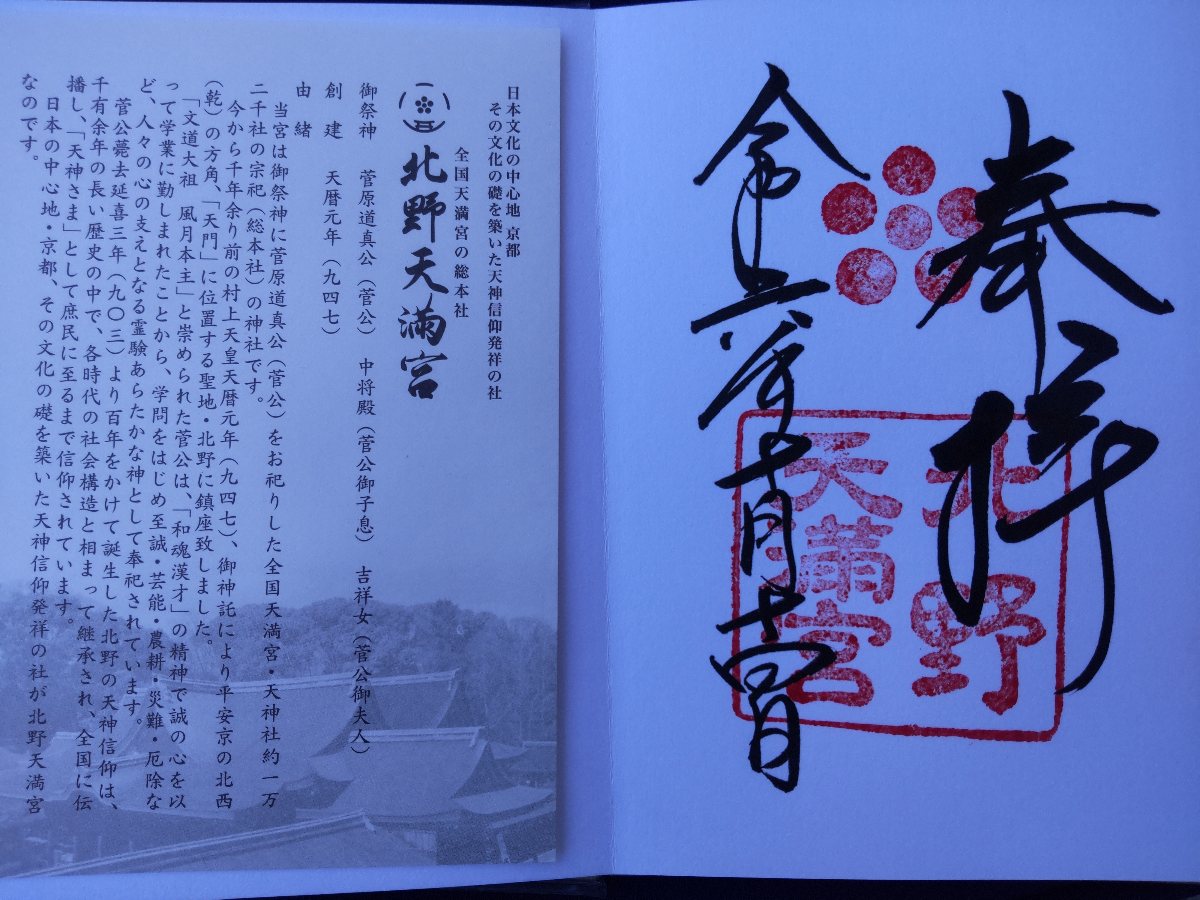 奉拝
北野
天満宮
令和五年十月十四日
日本文化の中心地 京都
その文化の礎を築いた天神信仰発祥の社
全国天満宮の総本社
北野天満宮
御祭神 菅原道真公（菅公） 中将殿（菅公御子息） 吉祥女（菅公御夫人）
創建 天暦元年（九四七）
由緒
当宮は御祭神に菅原道真公（菅公）をお祀りした全国天満宮・天神社約一万
二千社の宗祀（総本社）の神社です。
今から千年余り前の村上天皇天暦元年（九四七）、御神託により平安京の北西
（乾）の方角、「天門」に位置する聖地・北野に鎮座致しました。
「文道大祖 風月本主」と崇められた菅公は、「和魂漢才」の精神で誠の心を以
って学業に勤しまれたことから、学問をはじめ至誠・芸能・農耕・災難・厄除な
ど、人々の心の支えとなる霊験あらたかな神として奉祀されています。
菅公薨去延喜三年（九〇三）より百年をかけて誕生した北野の天神信仰は、
千有余年の長い歴史の中で、各時代の社会構造と相まって継承され、全国に伝
播し、「天神さま」として庶民に至るまで信仰されています。
日本の中心地・京都、その文化の礎を築いた天神信仰発祥の社が北野天満宮
なのです。